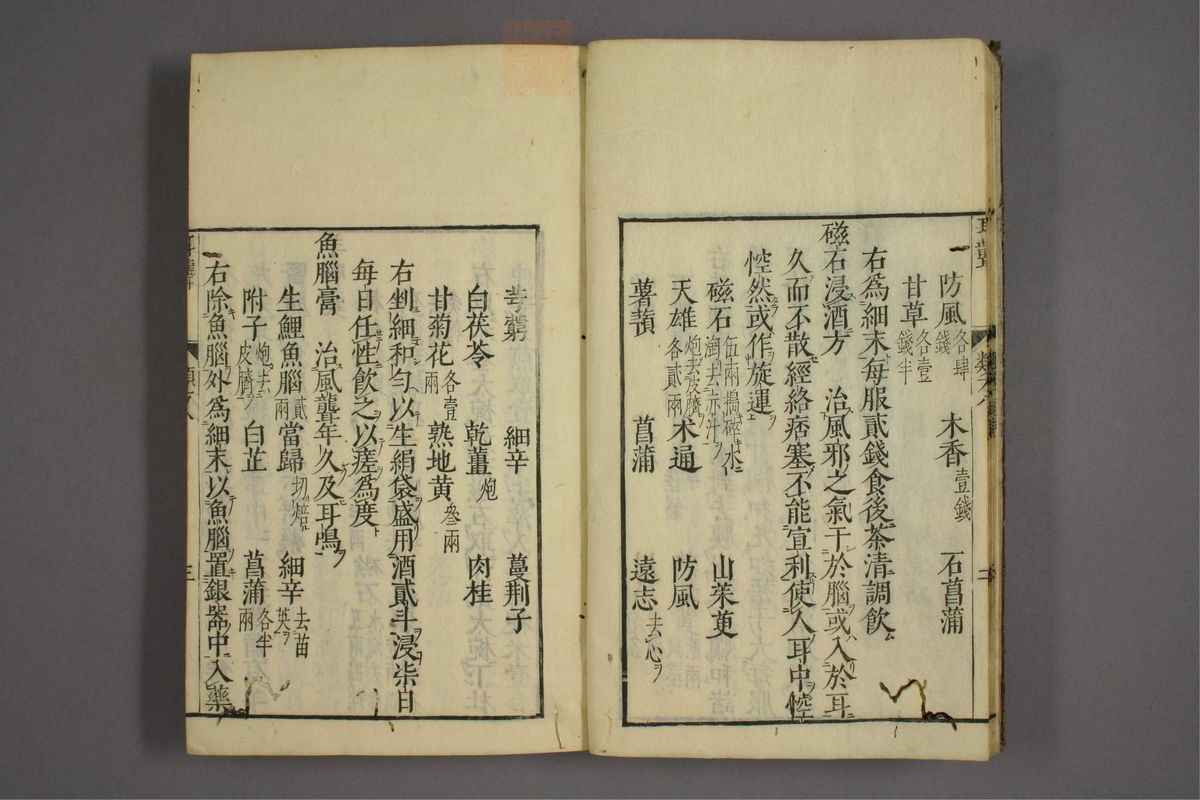 防風各肆錢 木香壹錢 石菖蒲
甘草各壹錢半
右爲細末每服貳錢食後茶清調飮
磁石浸酒方 治風邪之氣干於腦或入於耳
久而不散經絡痞塞不能宣利使人耳中悾
悾然或作旋運
磁石伍兩搗碎水淘去赤汁 山茱萸
天雄炮去皮臍各貳兩 木通 防風
薯蕷 菖蒲 遠志去心
芎藭 細辛 蔓荆子
白茯苓 乾薑炮 肉桂
甘菊花各壹兩 熟地黄叄兩
右剉細和勻以生絹袋盛用酒貳斗浸柒日
每日任性飮之以瘥爲度
魚腦膏 治風聾年久及耳鳴
生鯉魚腦貳兩 當歸切焙 細辛去苗英
附子炮去皮臍 白芷 菖蒲各半兩
右除魚腦外爲細末以魚腦置銀器中入藥